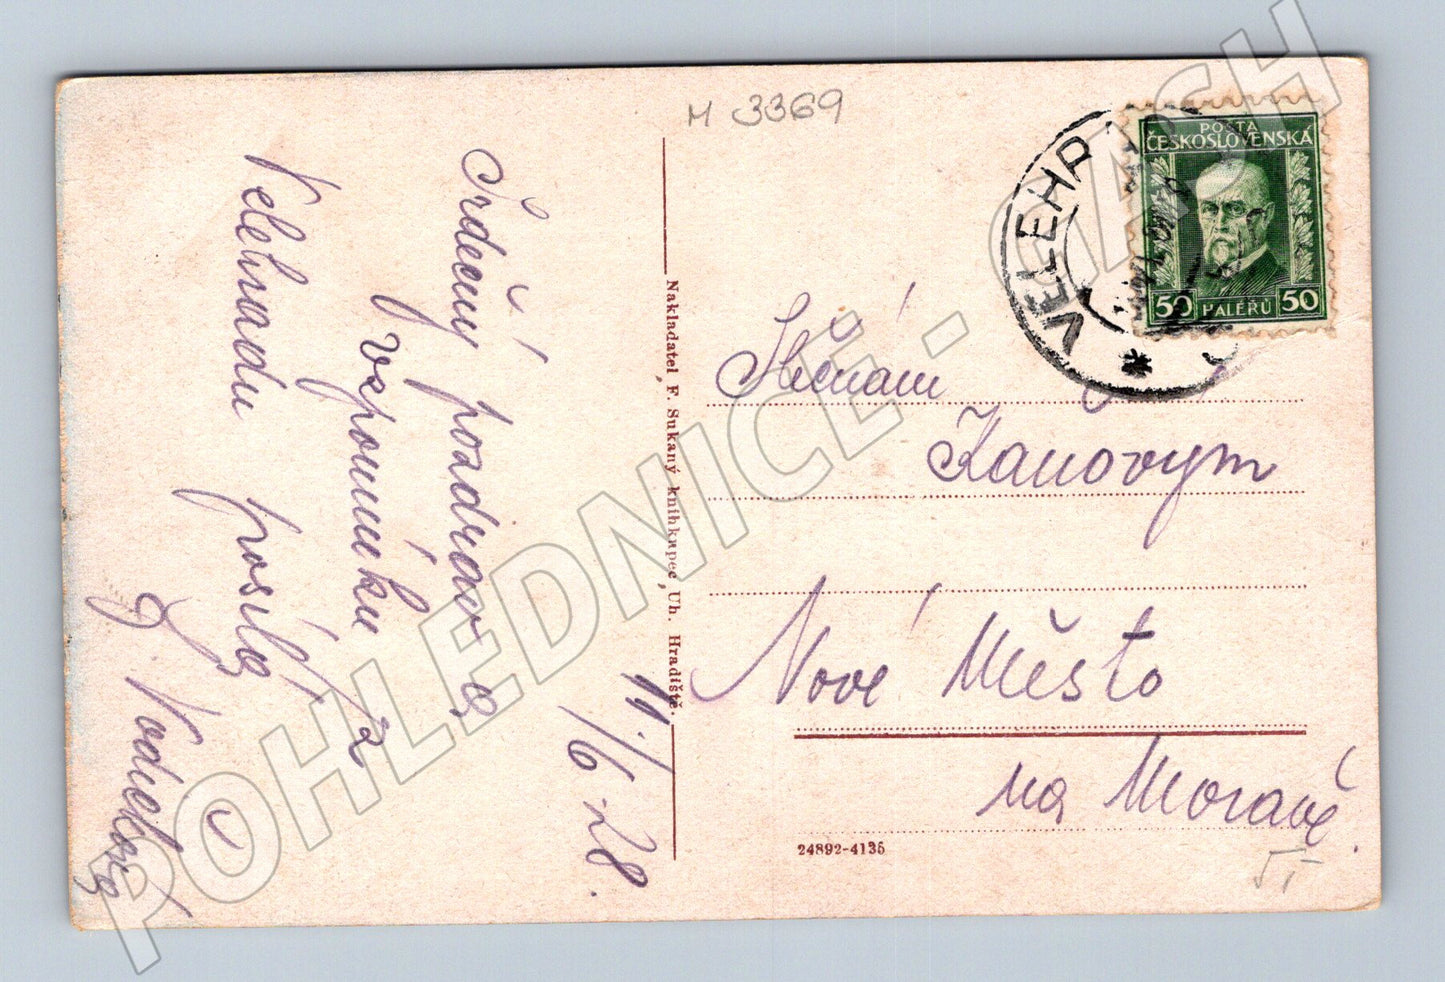 M 3369
Srdečný pozdrav a
vzpomínku z
Velehradu posílá
J. Vodičková
11./6 28.
Nakladatel F. Sukaný knihkupec, Uh. Hradiště.
VELEHRAD
POŠTA
ČESKOSLOVENSKÁ
50 HALÉŘŮ 50
Slečnám
Kanovým
Nové Město
na Moravě.
24892-4135
POHLEDNICE - GASH